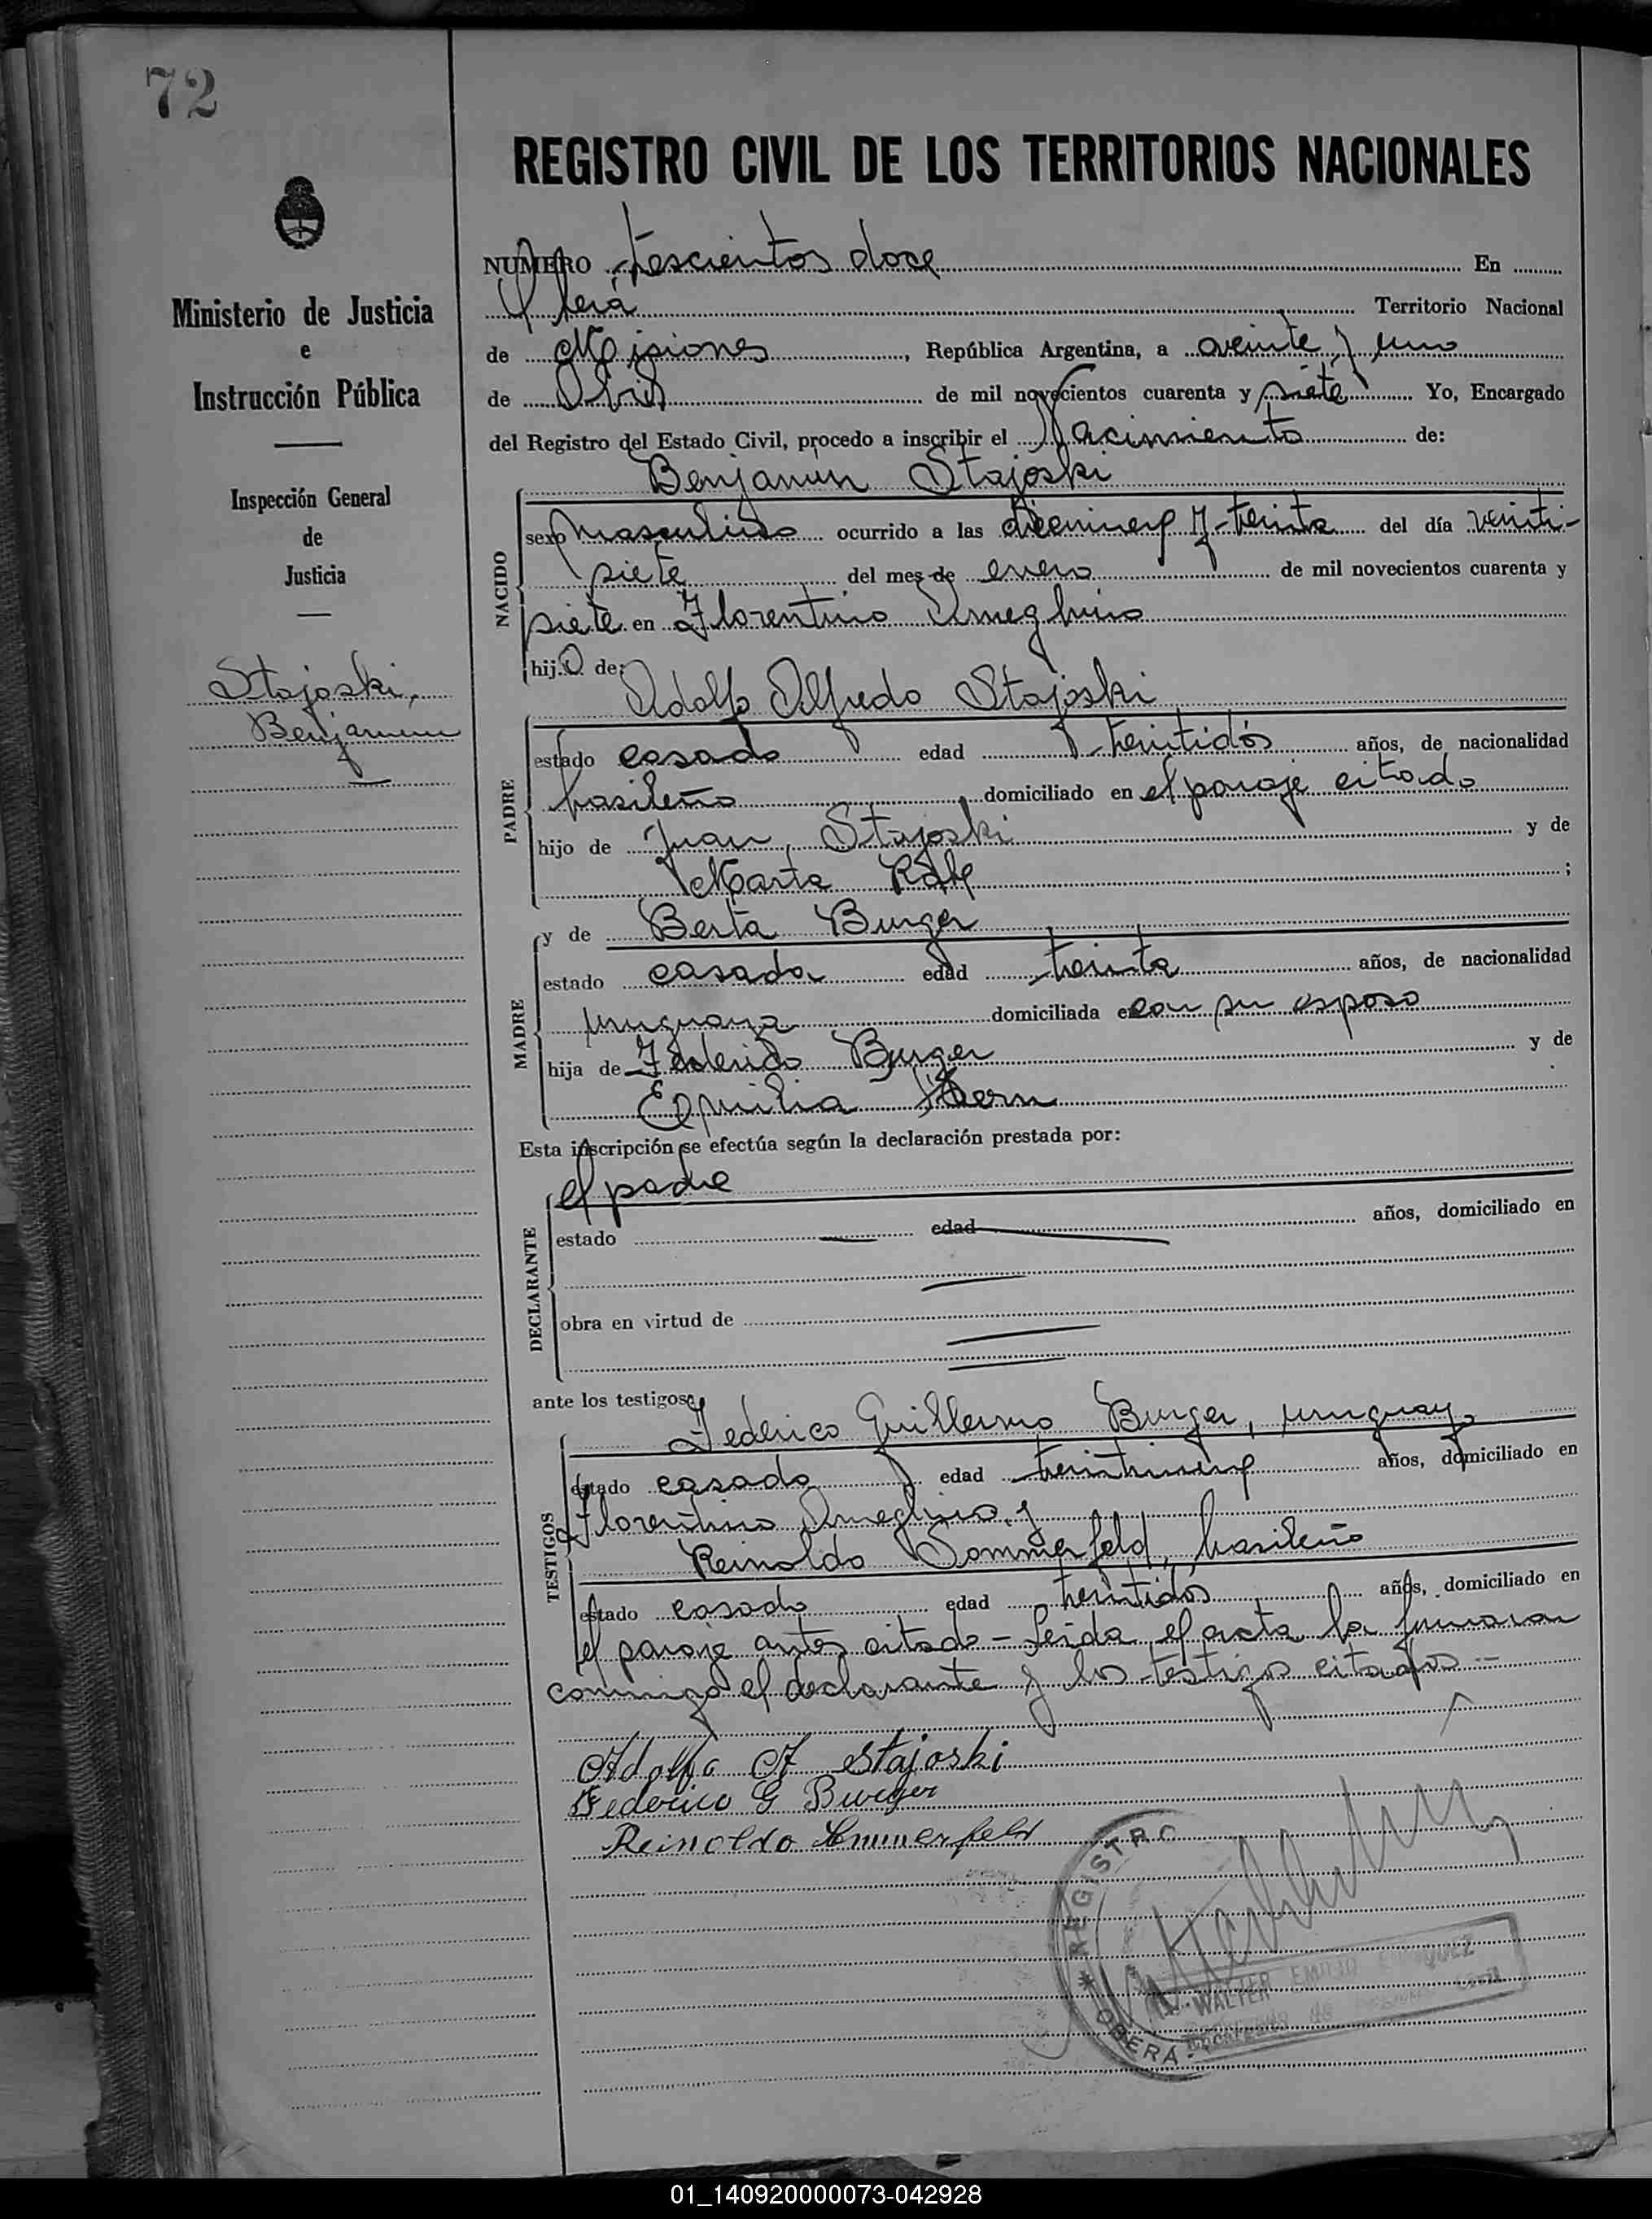 72
REGISTRO CIVIL DE LOS TERRITORIOS NACIONALES
Ministerio de Justicia
e
Instrucción Pública
Inspección General
de
Justicia
Stajoski,
Benjamin
NUMERO trescientos doce En
Oberá Territorio Nacional
de Misiones, República Argentina, a veinte y uno
de Abril de mil novecientos cuarenta y siete Yo, Encargado
del Registro del Estado Civil, procedo a inscribir el Nacimiento de:
Benjamin Stajoski
NACIDO
sexo masculino ocurrido a las diecinueve y treinta del día veinti-
siete del mes de enero de mil novecientos cuarenta y
siete en Florentino Ameghino
hijo de:
Adolfo Alfredo Stajoski
PADRE
estado casado edad treintidós años, de nacionalidad
brasileño domiciliado en el paraje citado
hijo de Juan Stajoski y de
Marta ;
y de Berta Burger
MADRE
estado casada edad treinta años, de nacionalidad
uruguaya domiciliada con su esposo
hija de Federico Burger y de
Emilia
Esta inscripción se efectúa según la declaración prestada por:
el padre
DECLARANTE
estado edad años, domiciliado en
obra en virtud de
ante los testigos:
Federico Guillermo Burger, uruguayo
TESTIGOS
estado casado edad treintinueve años, domiciliado en
Florentino Ameghino y
Reinoldo Sommerfeld, brasileño
estado casado edad treintidos años, domiciliado en
el paraje antes citado - Leida el acta la firmaron
conmigo el declarante y los testigos citados -
Adolfo A Stajoski
Federico G Burger
Reinoldo Sommerfeld
REGISTRO
OBERA
WALTER EMILIO
01_140920000073-042928